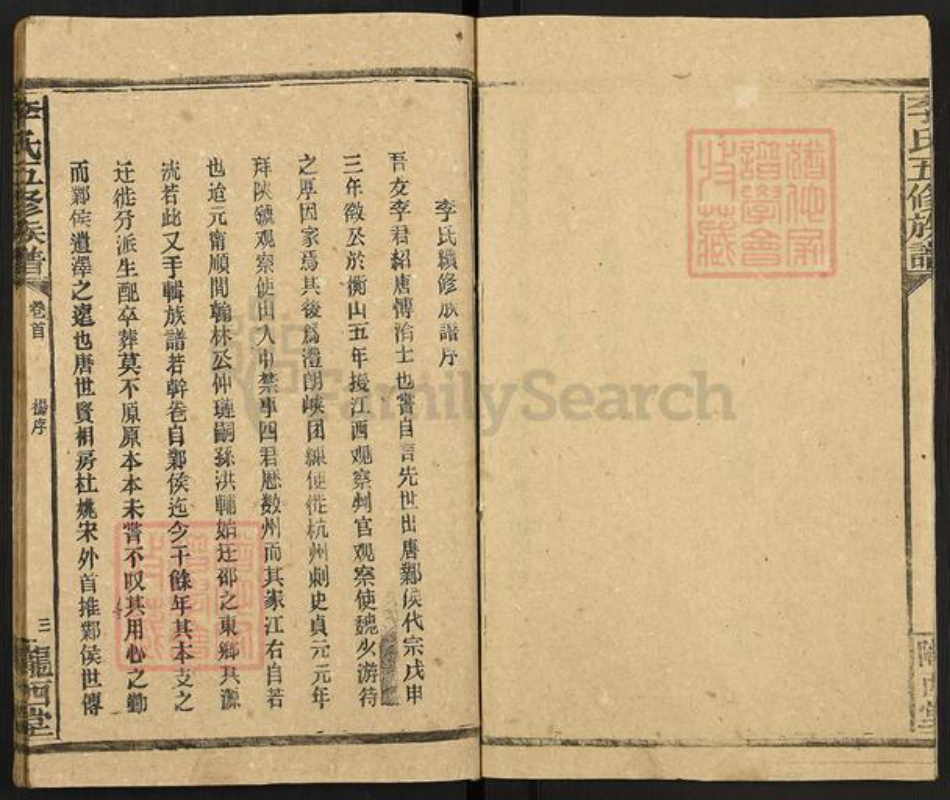 李氏五修族譜
隴西堂
李氏續修族譜序
吾友李君紹唐傳治士也嘗自言先世出唐鄴侯代宗戊申
三年徵公於衡山五年授江西观察判官观察使魏少游待
之厚因家焉其後為澧朗峡团練使徙杭州刺史貞元元年
拜陕虢观察使出入中禁事四君歷数州而其家江右自若
也迨元甯順間翰林公仲璉嗣孫洪輔始迁邵之東鄉其源
流若此又手輯族譜若幹卷自鄴侯迄今千餘年其本支之
迁徙分派生配卒葬莫不原原本本未嘗不叹其用心之勤
而鄴侯遺澤之遠也唐世賢相房杜姚宋外首推鄴侯世傳
李氏五修族譜
卷首
楊序
三
隴西堂
譜學會
收藏
FamilySearch